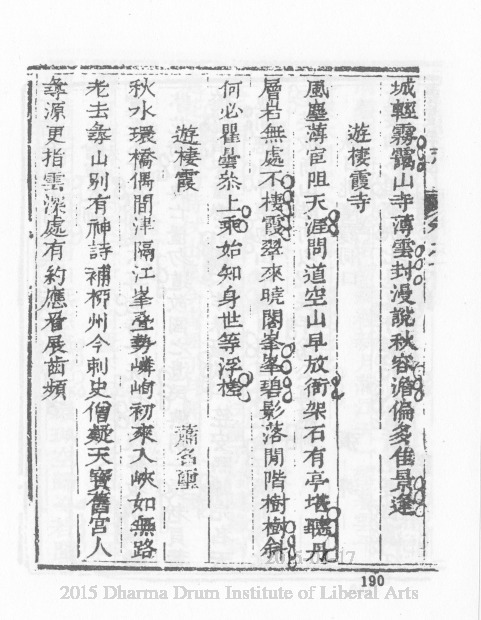 城輕霧靄山寺薄雲封漫說秋容澹偏多佳景逢
遊棲霞寺
風塵薄宦阻天涯問道空山早放衙架石有亭堪聽丹
層岩無處不棲霞翠來曉閣峯峯碧影落閒階樹樹斜
何必瞿曇叅上乘始知身世等浮槎
遊棲霞
蕭名璽
秋水環橋偶問津隔江峯叠勢嶙峋初來入峽如無路
老去尋山別有神詩補栁州今刺史僧疑天寶舊宮人
尋源更指雲深處有約應看展齒頻
190
2015 Dharma Drum Institute of Liberal Arts